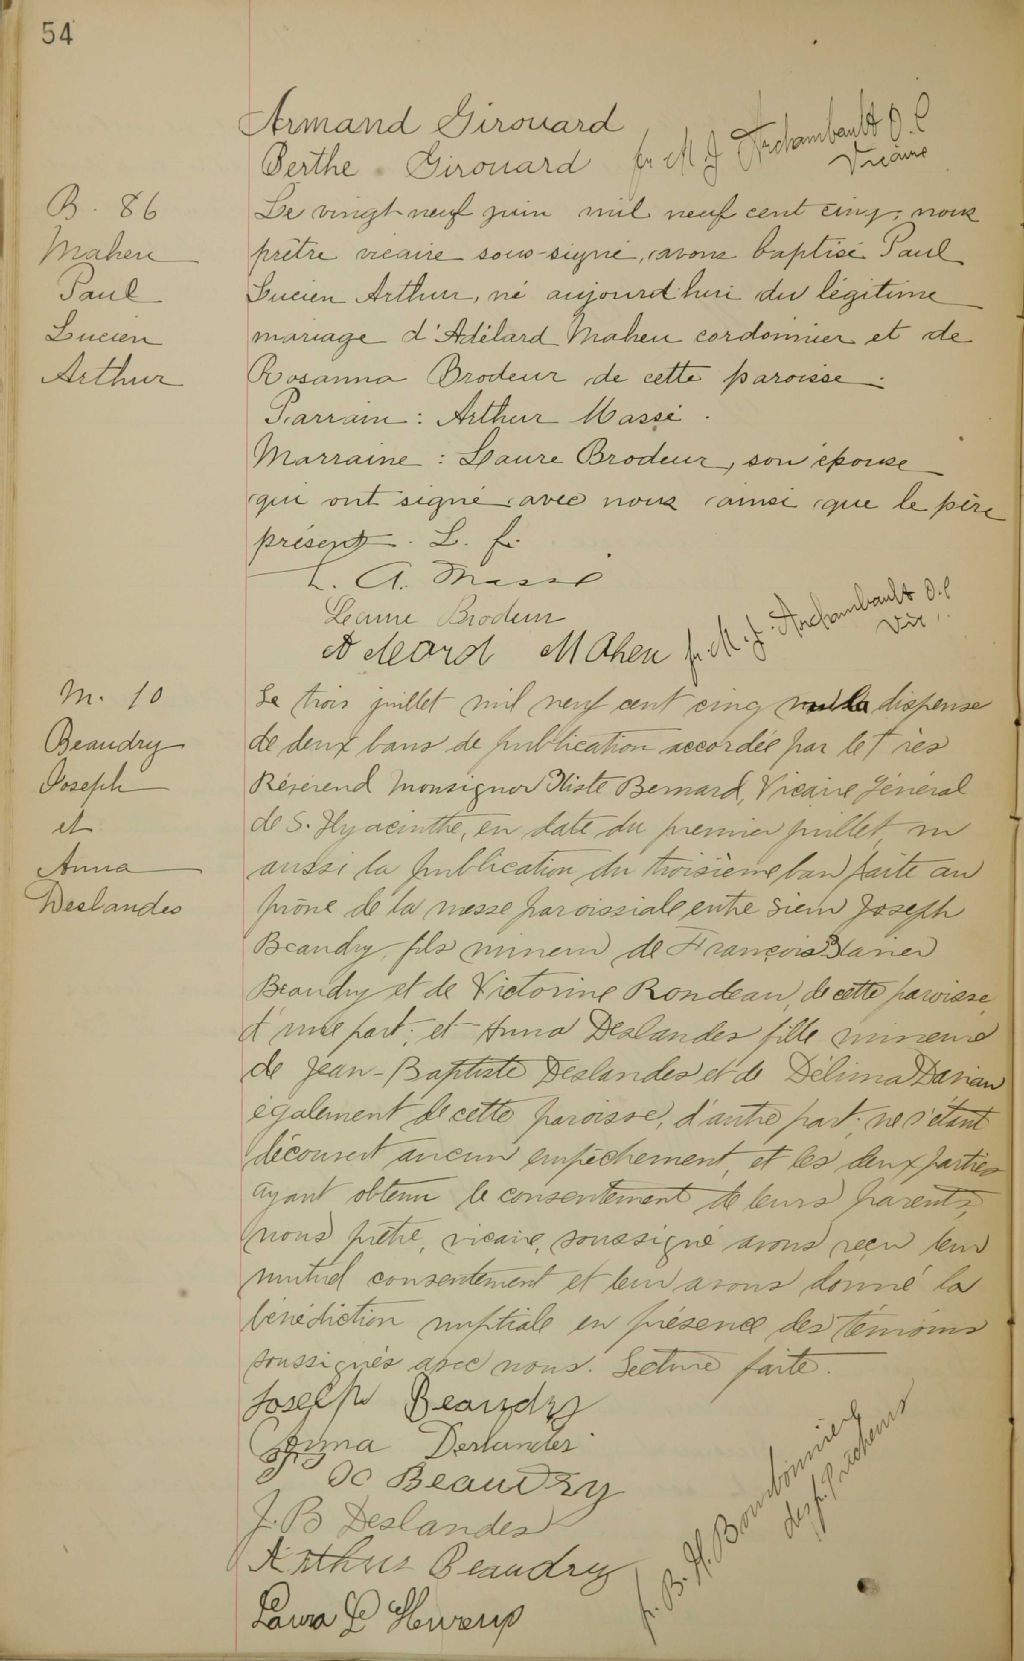 54
Armand Girouard
Berthe Girouard fr M J Archambault O.P
Vicaire
B. 86
Maheu
Paul
Lucien
Arthur
Le vingt-neuf juin mil neuf cent cinq, nous
prêtre vicaire sous-signé, avons baptisé Paul
Lucien Arthur, né aujourd'hui du légitime
mariage d'Adélard Maheu cordonnier et de
Rosanna Brodeur de cette paroisse.
Parrain : Arthur Massé.
Marraine : Laure Brodeur, son épouse
qui ont signé avec nous ainsi que le père
présent. L. f.
L. A. Massé
Laure Brodeur
Adelard Maheu fr. M. J. Archambault O.P
Vic.
M. 10
Beaudry
Joseph
et
Anna
Deslandes
Le trois juillet mil neuf cent cinq vu la dispense
de deux bans de publication accordée par le Très
Révérend Monsignor Bernard, Vicaire Général
de S. Hyacinthe, en date du premier juillet, vu
aussi la publication du troisième ban faite au
prône de la messe paroissiale entre sieur Joseph
Beaudry, fils mineur de François Xavier
Beaudry et de Victorine Rondeau, de cette paroisse,
d'une part; et Anna Deslandes fille mineure
de Jean-Baptiste Deslandes et de Délima Davian
également de cette paroisse, d'autre part; ne s'étant
découvert aucun empêchement, et les deux parties
ayant obtenu le consentement de leurs parents,
nous prêtre, vicaire, soussigné avons reçu leur
mutuel consentement et leur avons donné la
bénédiction nuptiale en présence des témoins
soussignés avec nous. Lecture faite.
Joseph Beaudry
Anna Deslandes
Beaudry
J. B Deslandes
Arthur Beaudry
Laura L'Heureux
fr. B. H. Bourbonnière
des f. Prêcheurs